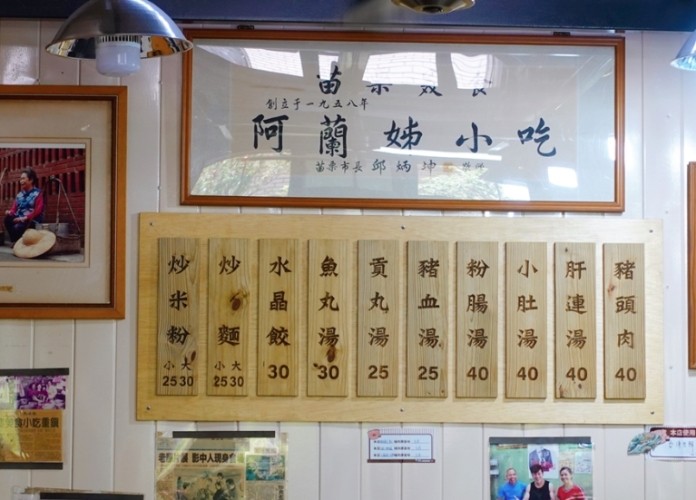 苗栗美食
創立于一九五八年
阿蘭姊小吃
苗栗市長 邱炳坤
炒米粉 小25 大30
炒麵 小25 大30
水晶餃 30
魚丸湯 30
貢丸湯 25
豬血湯 25
粉腸湯 40
小肚湯 40
肝連湯 40
豬頭肉 40
影中人現身